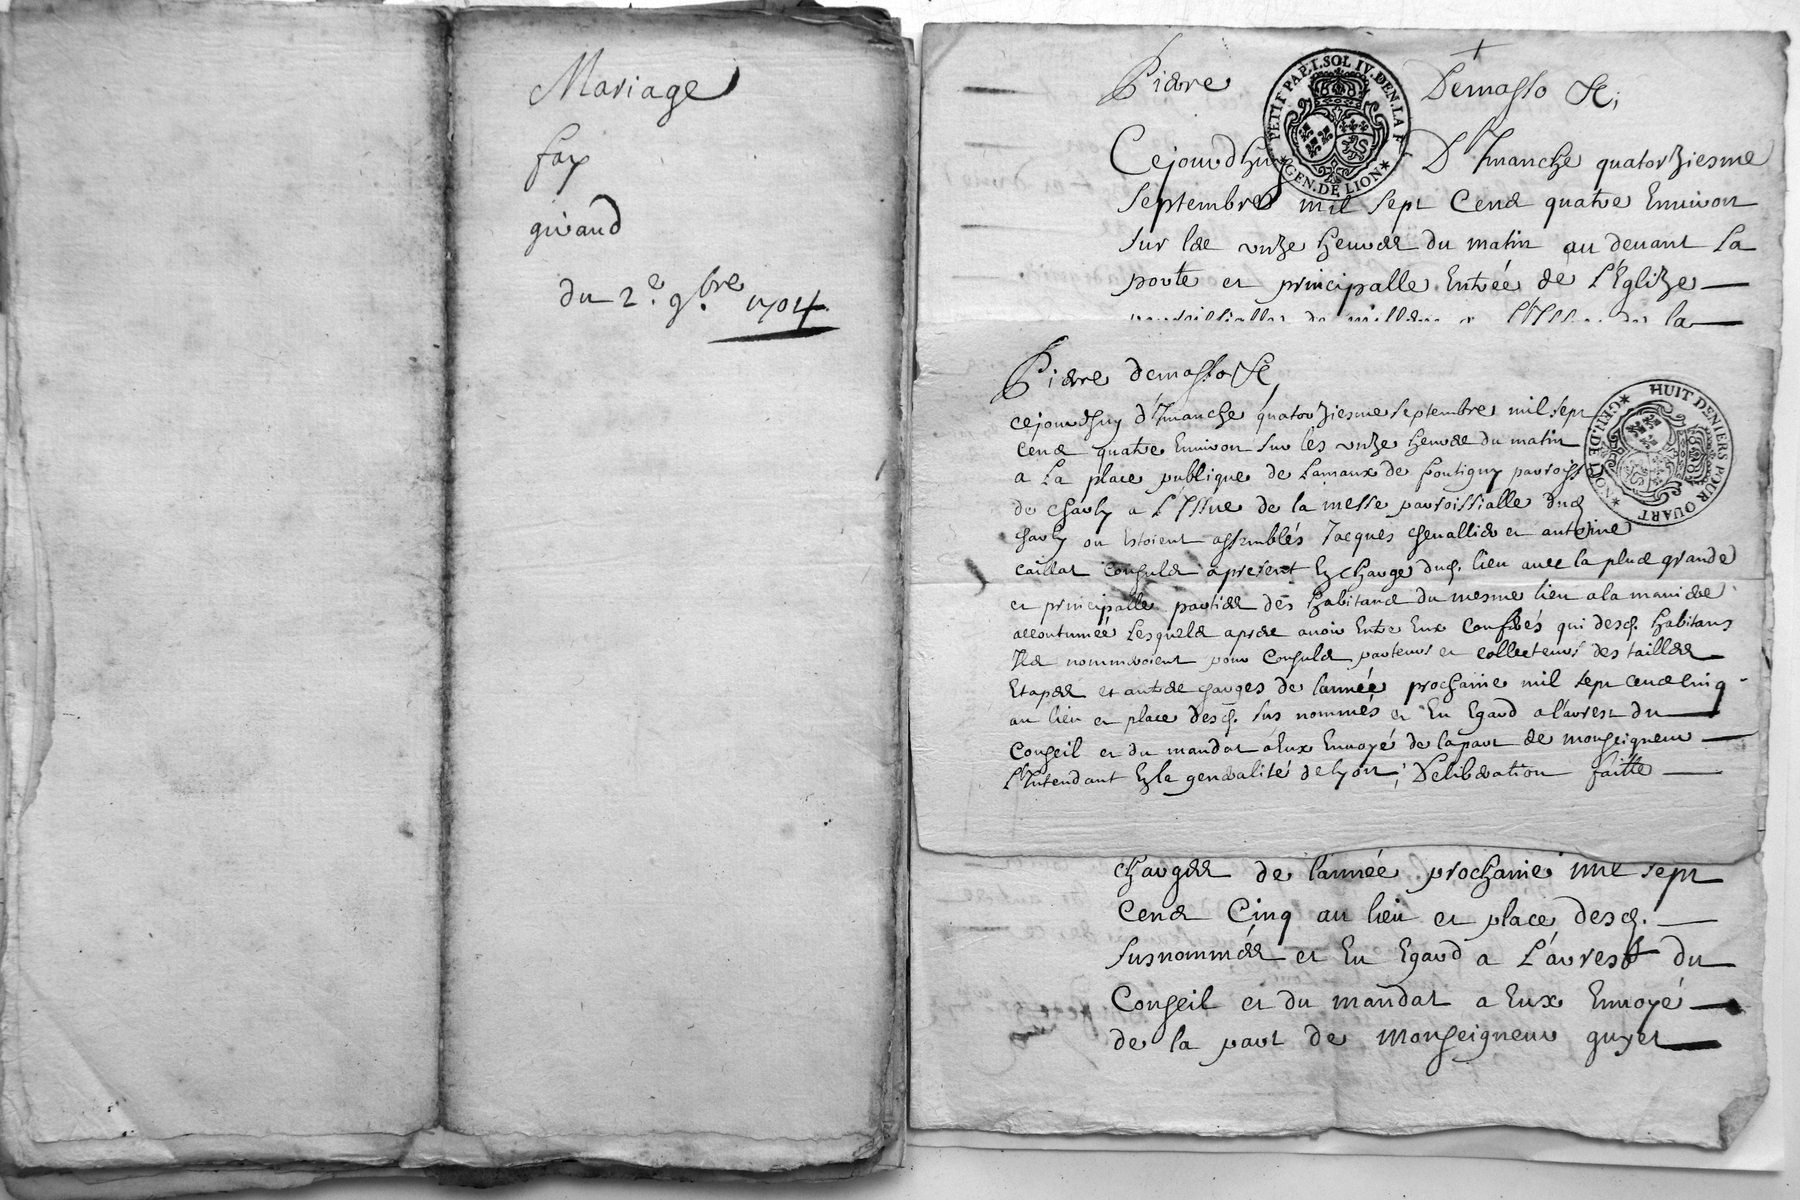 Mariage
fay
giraud
du 2e. 9bre. 1704
Pierre Demasso &c;
PETIT PAP. I. SOL IV. DEN. LA F.
GEN. DE LION
Cejourdhuy Dimanche quatorziesme
Septembre mil sept Cens quatre Environ
sur les onze heures du matin au devant La
porte et principalle Entrée de L'Eglize
la
Pierre demasso &c,
HUIT DENIERS POUR QUART
GEN. DE LION
cejourdhuy dimanche quatorziesme septembre mil sept
Cens quatre Environ sur les onze heures du matin
a La place publique de Lamaux de pontigny parroisse
de charly a L'Issue de la messe parroissialle dud.
charly ou Estoient assemblés Jacques chevallier et anthoine
caillat Consuls apresent En charge dud. lieu avec la plus grande
et principalle partie des habitans du mesme lieu a la maniere
accoutumée Lesquels apres avoir Entre Eux Conferés qui desd. habitans
Ils nommeroient pour Consuls porteurs et collecteurs des tailles
Etapes et autres charges de l'année prochaine mil sept cens Cinq
au lieu et place desd. sus nommés et Eu Egard a l'arrest du
Conseil et du mandat a Eux Envoyé de la part de monseigneur
L'Intendant En la generalité de Lyon; Deliberation faitte
charges de l'année prochaine mil sept
Cens Cinq au lieu et place desd.
susnommés et Eu Egard a L'arrest du
Conseil et du mandat a Eux Envoyé
de la part de Monseigneur guyet